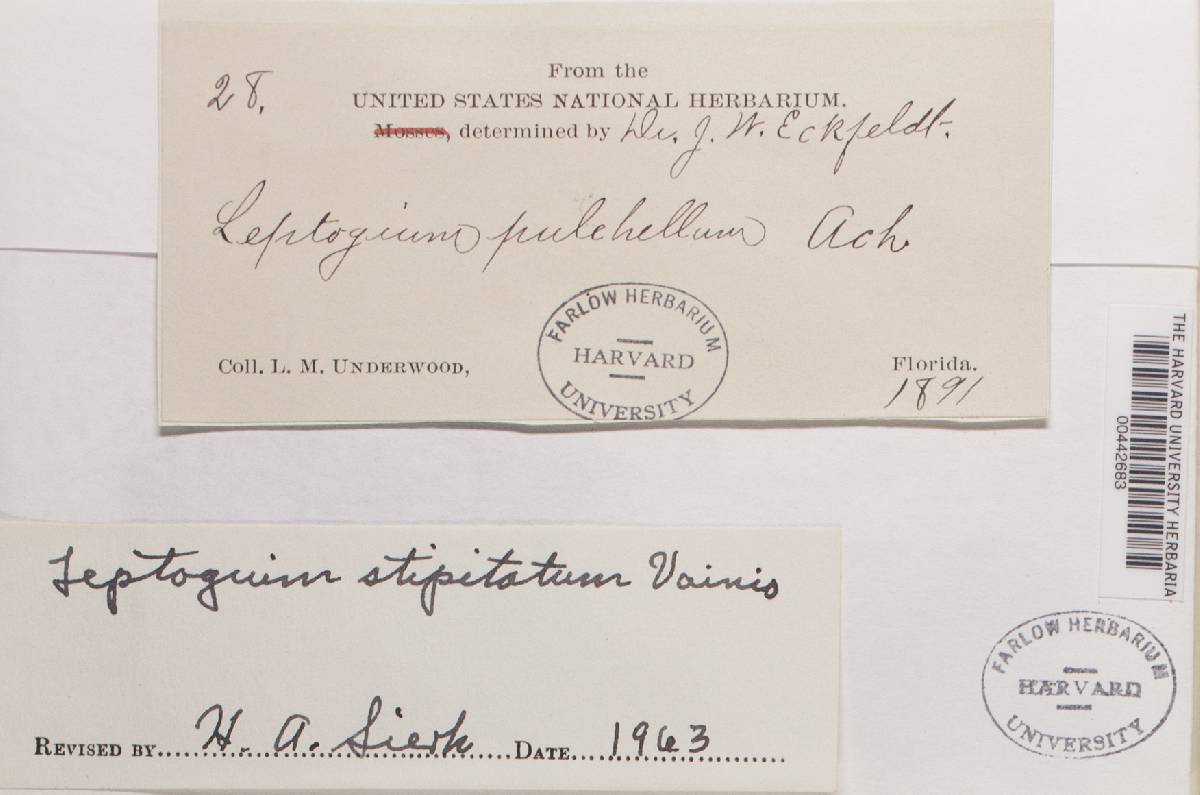 From the
28.
UNITED STATES NATIONAL HERBARIUM.
Mosses, determined by Dr. J. W. Eckfeldt.
Leptogium pulchellum Ach.
FARLOW HERBARIUM
HARVARD
UNIVERSITY
Coll. L. M. UNDERWOOD,
Florida.
1891
THE HARVARD UNIVERSITY HERBARIA
00442683
Leptogium stipitatum Vainio
REVISED BY.....H. A. Sierk.....DATE.....1963.....
FARLOW HERBARIUM
HARVARD
UNIVERSITY